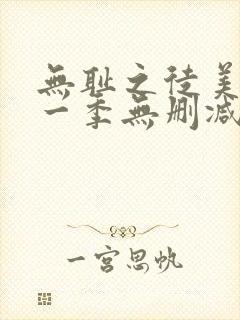 無耻之徒美
一季無删减
一宫思帆